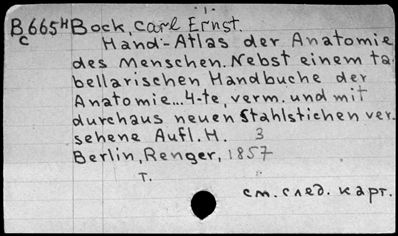 - 1 -
B 665 H Bock, Carl Ernst.
C
Hand-Atlas der Anatomie
des Menschen. Nebst einem ta-
bellarischen Handbuche der
Anatomie... 4-te, verm. und mit
durchaus neuen Stahlstichen ver-
sehene Aufl. H. 3
Berlin, Renger, 1857
т.
см. след. карт.